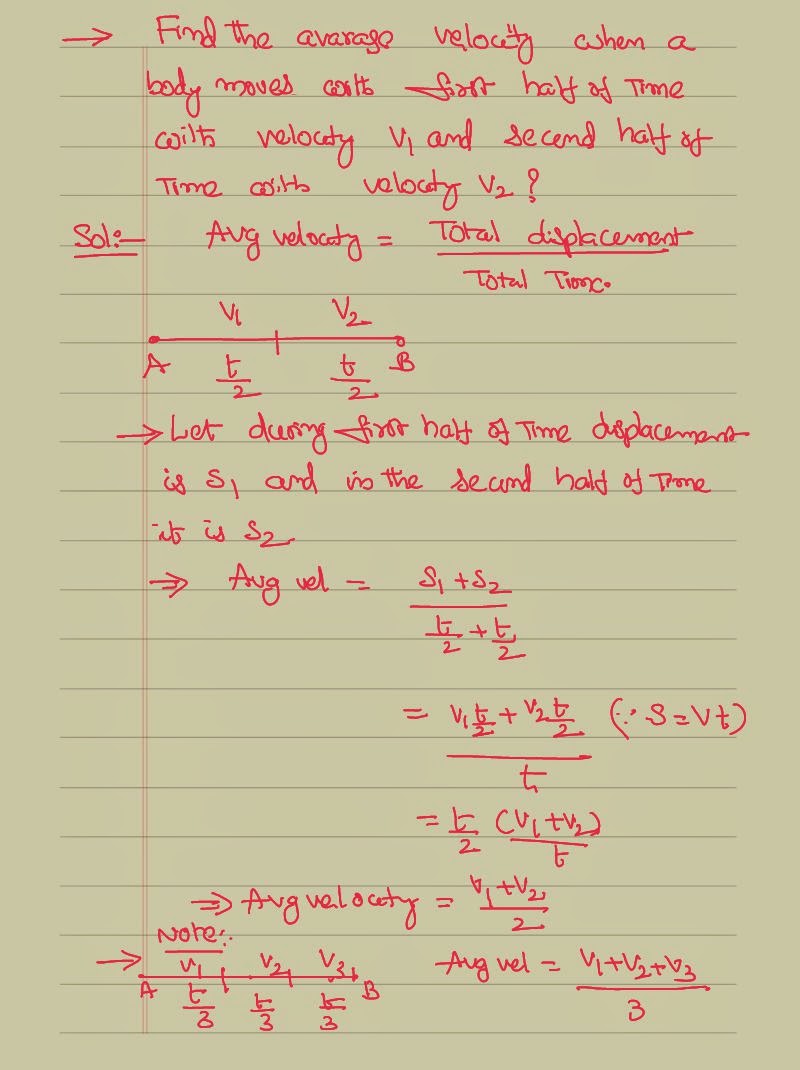 → Find the avarage velocity when a
body moves with first half of Time
with velocity V₁ and second half of
Time with velocity V₂ ?
Sol:- Avg velocity = Total displacement / Total Time.
V₁ V₂
A t/2 t/2 B
→ Let during first half of Time displacement
is S₁ and in the second half of Time
it is S₂
⇒ Avg vel = (S₁ + S₂) / (t/2 + t/2)
= (V₁ t/2 + V₂ t/2) / t (∵ S = Vt)
= t/2 (V₁ + V₂) / t
⇒ Avg velocity = (V₁ + V₂) / 2
Note:-
→ V₁ V₂ V₃ Avg vel = (V₁ + V₂ + V₃) / 3
A t/3 t/3 t/3 B